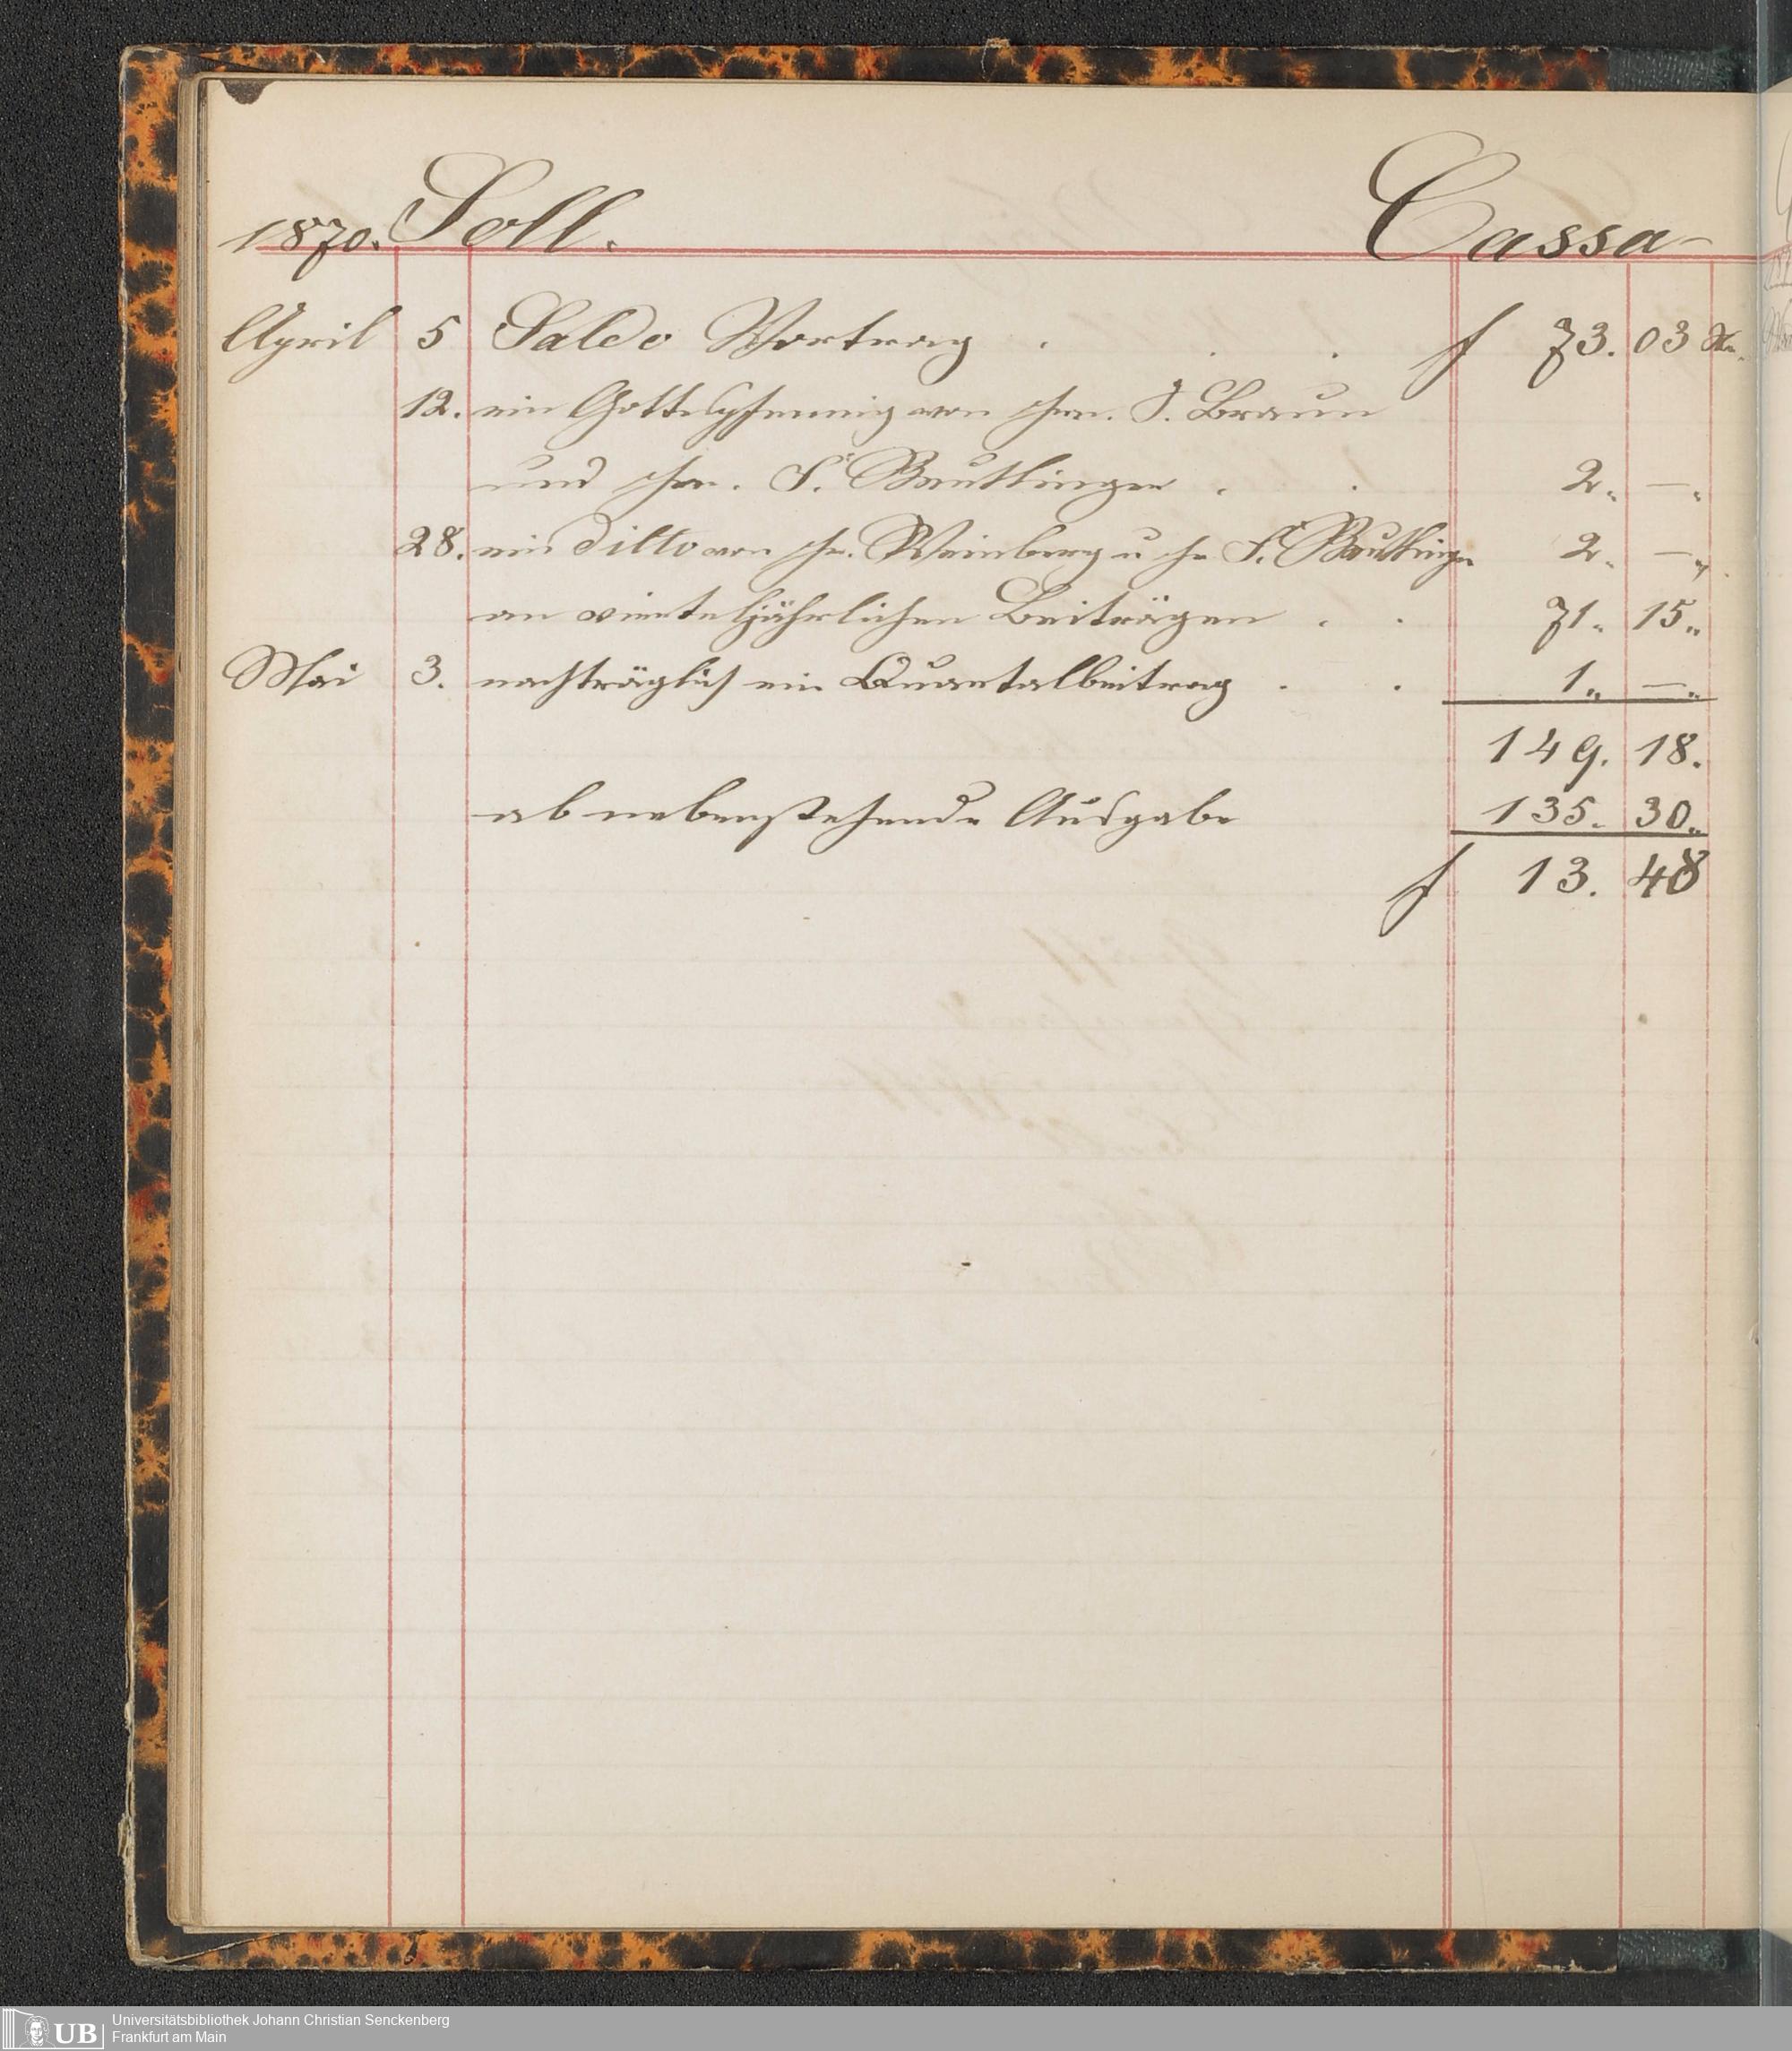 1870. Soll. Cassa-
April 5 Saldo Vortrag . . . f 73. 03 Kr.
12. ein Gottespfennig von Hrn. J. Braun
und Hrn. S. Reutlinger . . 2. — "
28. ein ditto von Hr. Weinberg u Hr S. Reutlinger 2. — "
an vierteljährlichen Beiträgen . . 71. 15 "
Mai 3. nachträglich ein Quartalbeitrag . . 1 " — "
149. 18.
ab nebenstehende Ausgabe 135. 30 "
f 13. 48
UB Universitätsbibliothek Johann Christian Senckenberg
Frankfurt am Main